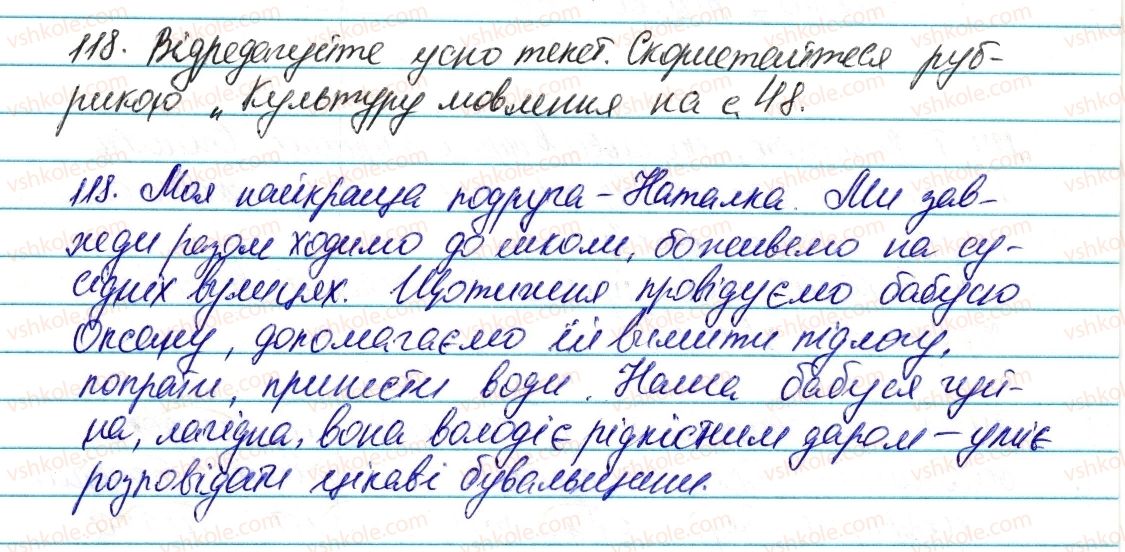 118. Відредагуйте усно текст. Скористайтеся руб-
рикою „Культуру мовлення на с. 48.
118. Моя найкраща подруга – Наталка. Ми зав-
жди разом ходимо до школи, бо живемо на су-
сідніх вулицях. Щотижня провідуємо бабусю
Оксану, допомагаємо їй вимити підлогу,
попрати, принести води. Наша бабуся чуй-
на, лагідна, вона володіє рідкісним даром – уміє
розповідати цікаві бувальщини.